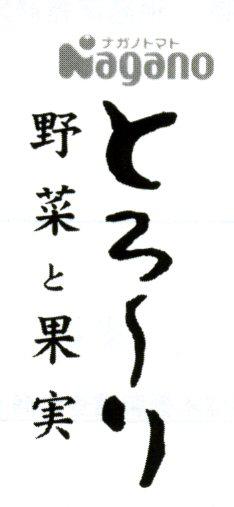 ナガノトマト
Nagano
とろ〜り
野菜と果実